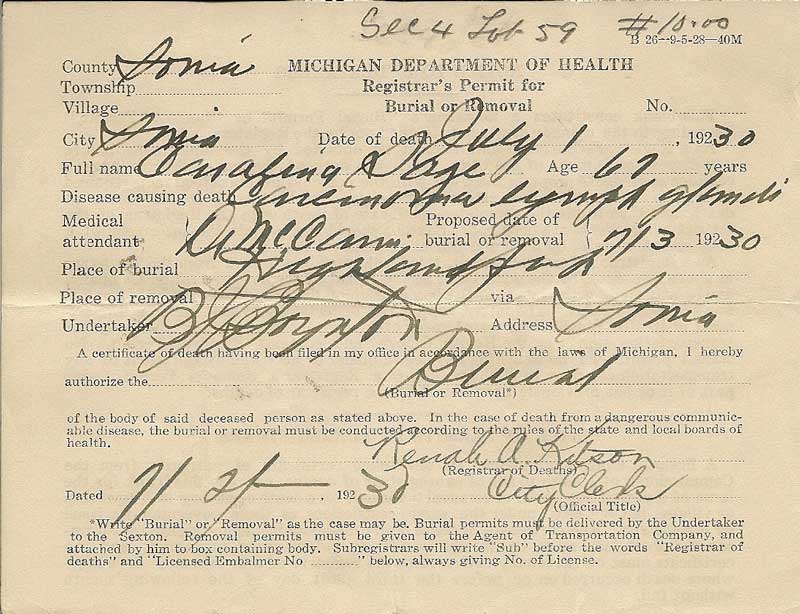 Sec 4 Lot 59 # 10.00
B 26—9-5-28—40M
County Ionia MICHIGAN DEPARTMENT OF HEALTH
Township Registrar's Permit for
Village Burial or Removal No.
City Ionia Date of death July 1, 192 30
Full name Page Age 67 years
Disease causing death Carcinoma lymph glands
Medical attendant McCann Proposed date of burial or removal 7/3 192 30
Place of burial Highland Park
Place of removal via
Undertaker Boynton Address Ionia
A certificate of death having been filed in my office in accordance with the laws of Michigan, I hereby
authorize the Burial
(Burial or Removal*)
of the body of said deceased person as stated above. In the case of death from a dangerous communic-
able disease, the burial or removal must be conducted according to the rules of the state and local boards of
health.
A. Kitson
(Registrar of Deaths)
Dated 7/2, 192 30 City Clerk
(Official Title)
*Write "Burial" or "Removal" as the case may be. Burial permits must be delivered by the Undertaker
to the Sexton. Removal permits must be given to the Agent of Transportation Company, and
attached by him to box containing body. Subregistrars will write "Sub" before the words "Registrar of
deaths" and "Licensed Embalmer No ..........." below, always giving No. of License.